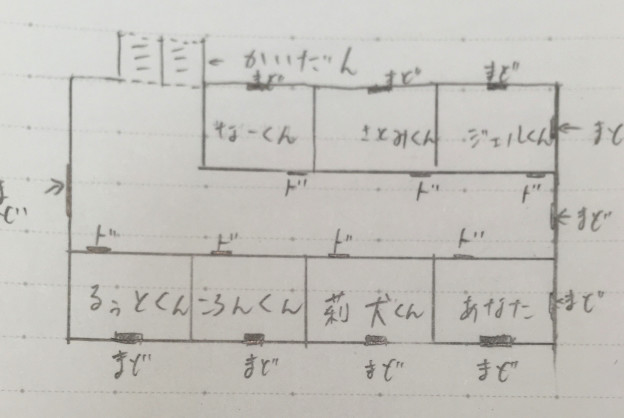 ← かいだん
まど
まど
まど
なーくん
さとみくん
ジェルくん
← まど
まど →
ド
ド
ド
← まど
ド
ド
ド
ド
るぅとくん
ころんくん
莉犬くん
あなた
← まど
まど
まど
まど
まど